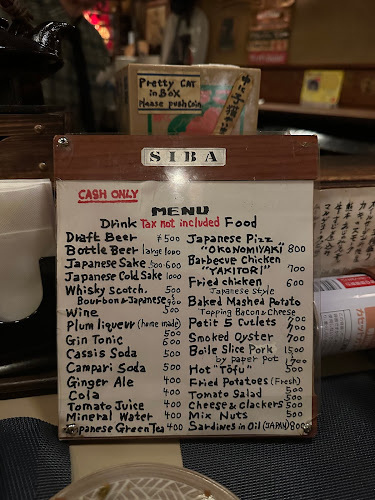 Pretty CAT
in BOX
Please push Coin
SIBA
CASH ONLY
MENU
Drink Tax not included Food
Draft Beer ¥500
Bottle Beer large 1000
Japanese Sake 500 600
Japanese Cold Sake 1000
Whisky Scotch. 500
Bourbon & Japanese 900
Wine 500
Plum liqueur (home made) 500
Gin Tonic 600
Cassis Soda 500
Campari Soda 500
Ginger Ale 400
Cola 400
Tomato Juice 400
Mineral Water 400
Japanese Green Tea 400
Japanese Pizz
"OKONOMIYAKI" 800
Barbecue Chicken
"YAKITORI" 700
Fried chicken 600
Japanese Style
Baked Mashed Potato
Topping Bacon & Cheese 700
Potit 5 Cutlets 700
Smoked Oyster 700
Boile Slice Pork 1500
by paper pot 1700
Hot "Tofu" 500
Fried Potatoes (Fresh) 500
Tomato Salad 500
Cheese & Clackers 500
Mix Nuts 500
Sardines in Oil (JAPAN) 800